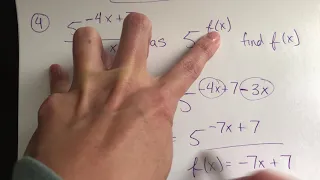 ④ 5^(-4x+7 x as 5^f(x) find f(x)
5^(-4x+7-3x)
= 5^(-7x+7)
f(x) = -7x+7